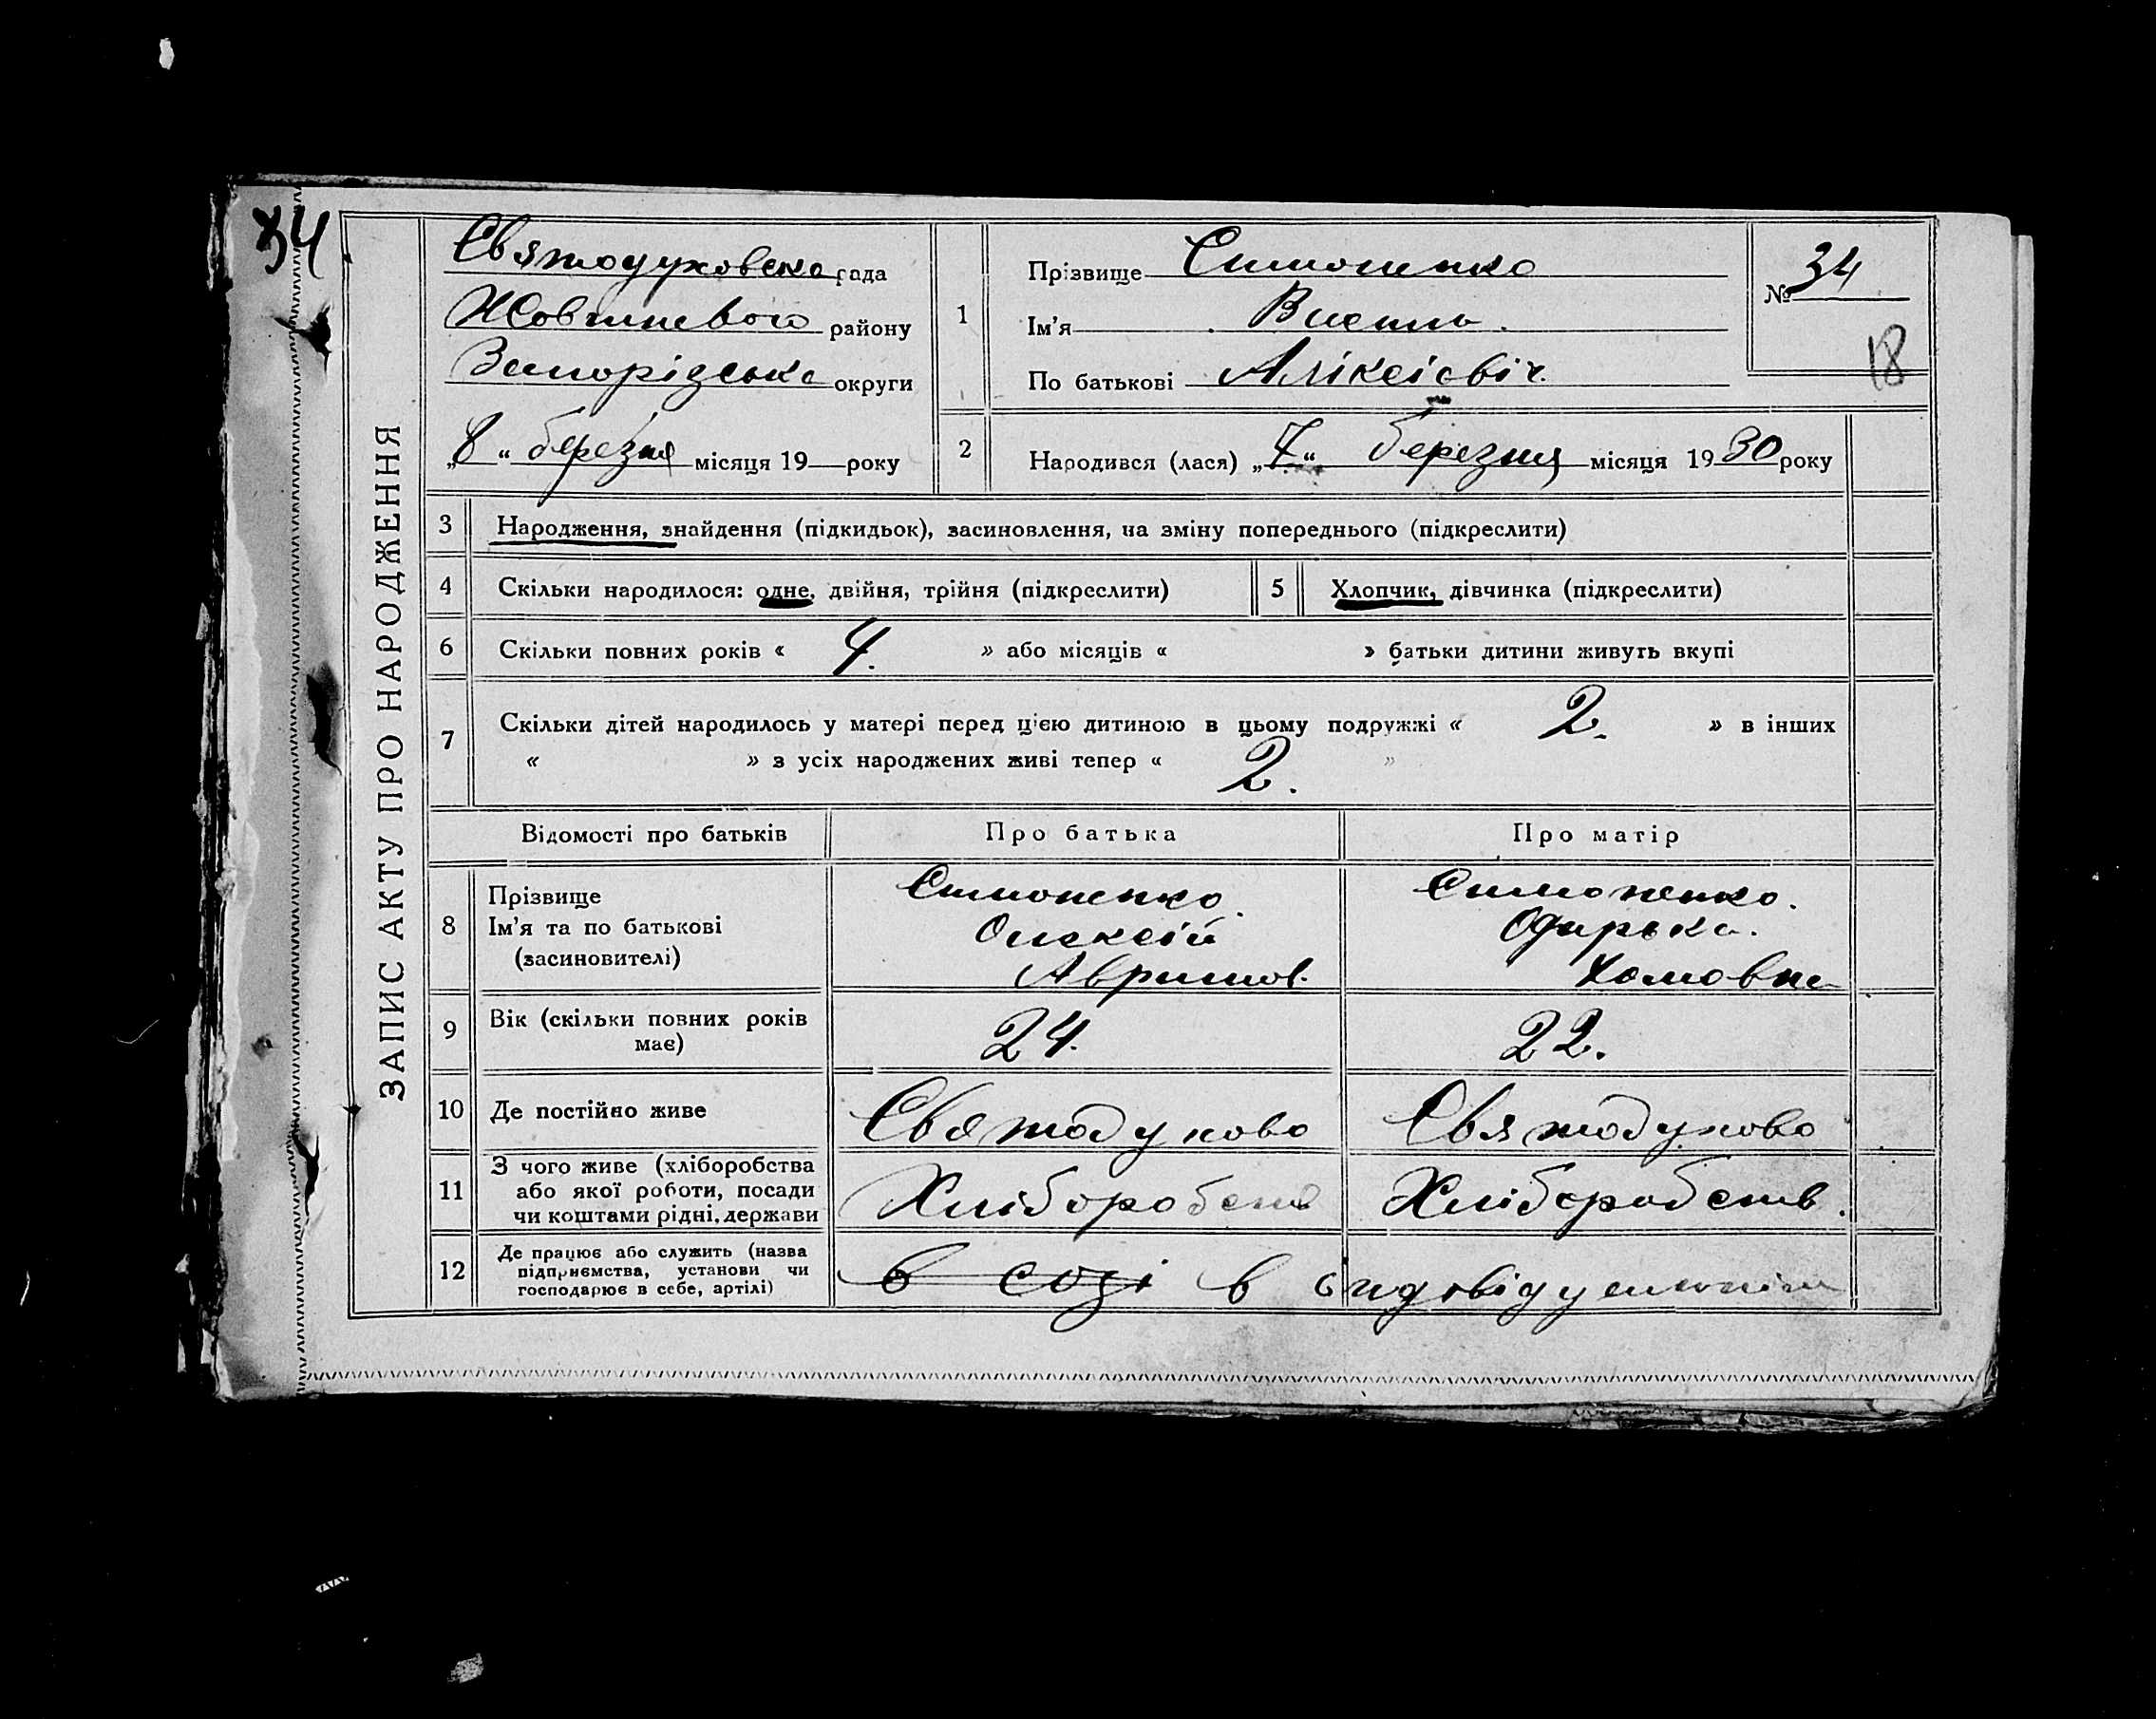 34
ЗАПИС АКТУ ПРО НАРОДЖЕННЯ
Святодуховська рада
Жовтневого району
Запорізська округи
„8“ березня місяця 19 — року
1
Прізвище Симоненко
Ім'я Василь.
По батькові Аліксієвіч.
№ 34
18
2
Народився (лася) „7“ березня місяця 1930 року
3 Народження, знайдення (підкидьок), засиновлення, на зміну попереднього (підкреслити)
4 Скільки народилося: одне, двійня, трійня (підкреслити) 5 Хлопчик, дівчинка (підкреслити)
6 Скільки повних років « 4. » або місяців « » батьки дитини живуть вкупі
7 Скільки дітей народилось у матері перед цією дитиною в цьому подружжі « 2. » в інших
« » з усіх народжених живі тепер « 2. »
Відомості про батьків Про батька Про матір
8 Прізвище Симоненко. Симоненко.
Ім'я та по батькові Олексій Одарька.
(засновителі) Хомовна
9 Вік (скільки повних років 24. 22.
має)
10 Де постійно живе Святодухово Святодухово
11 З чого живе (хліборобства
або якої роботи, посади Хліборобств Хліборобств.
чи коштами рідні, держави
12 Де працює або служить (назва
підприємства, установи чи в созі в
господарює в себе, артілі)